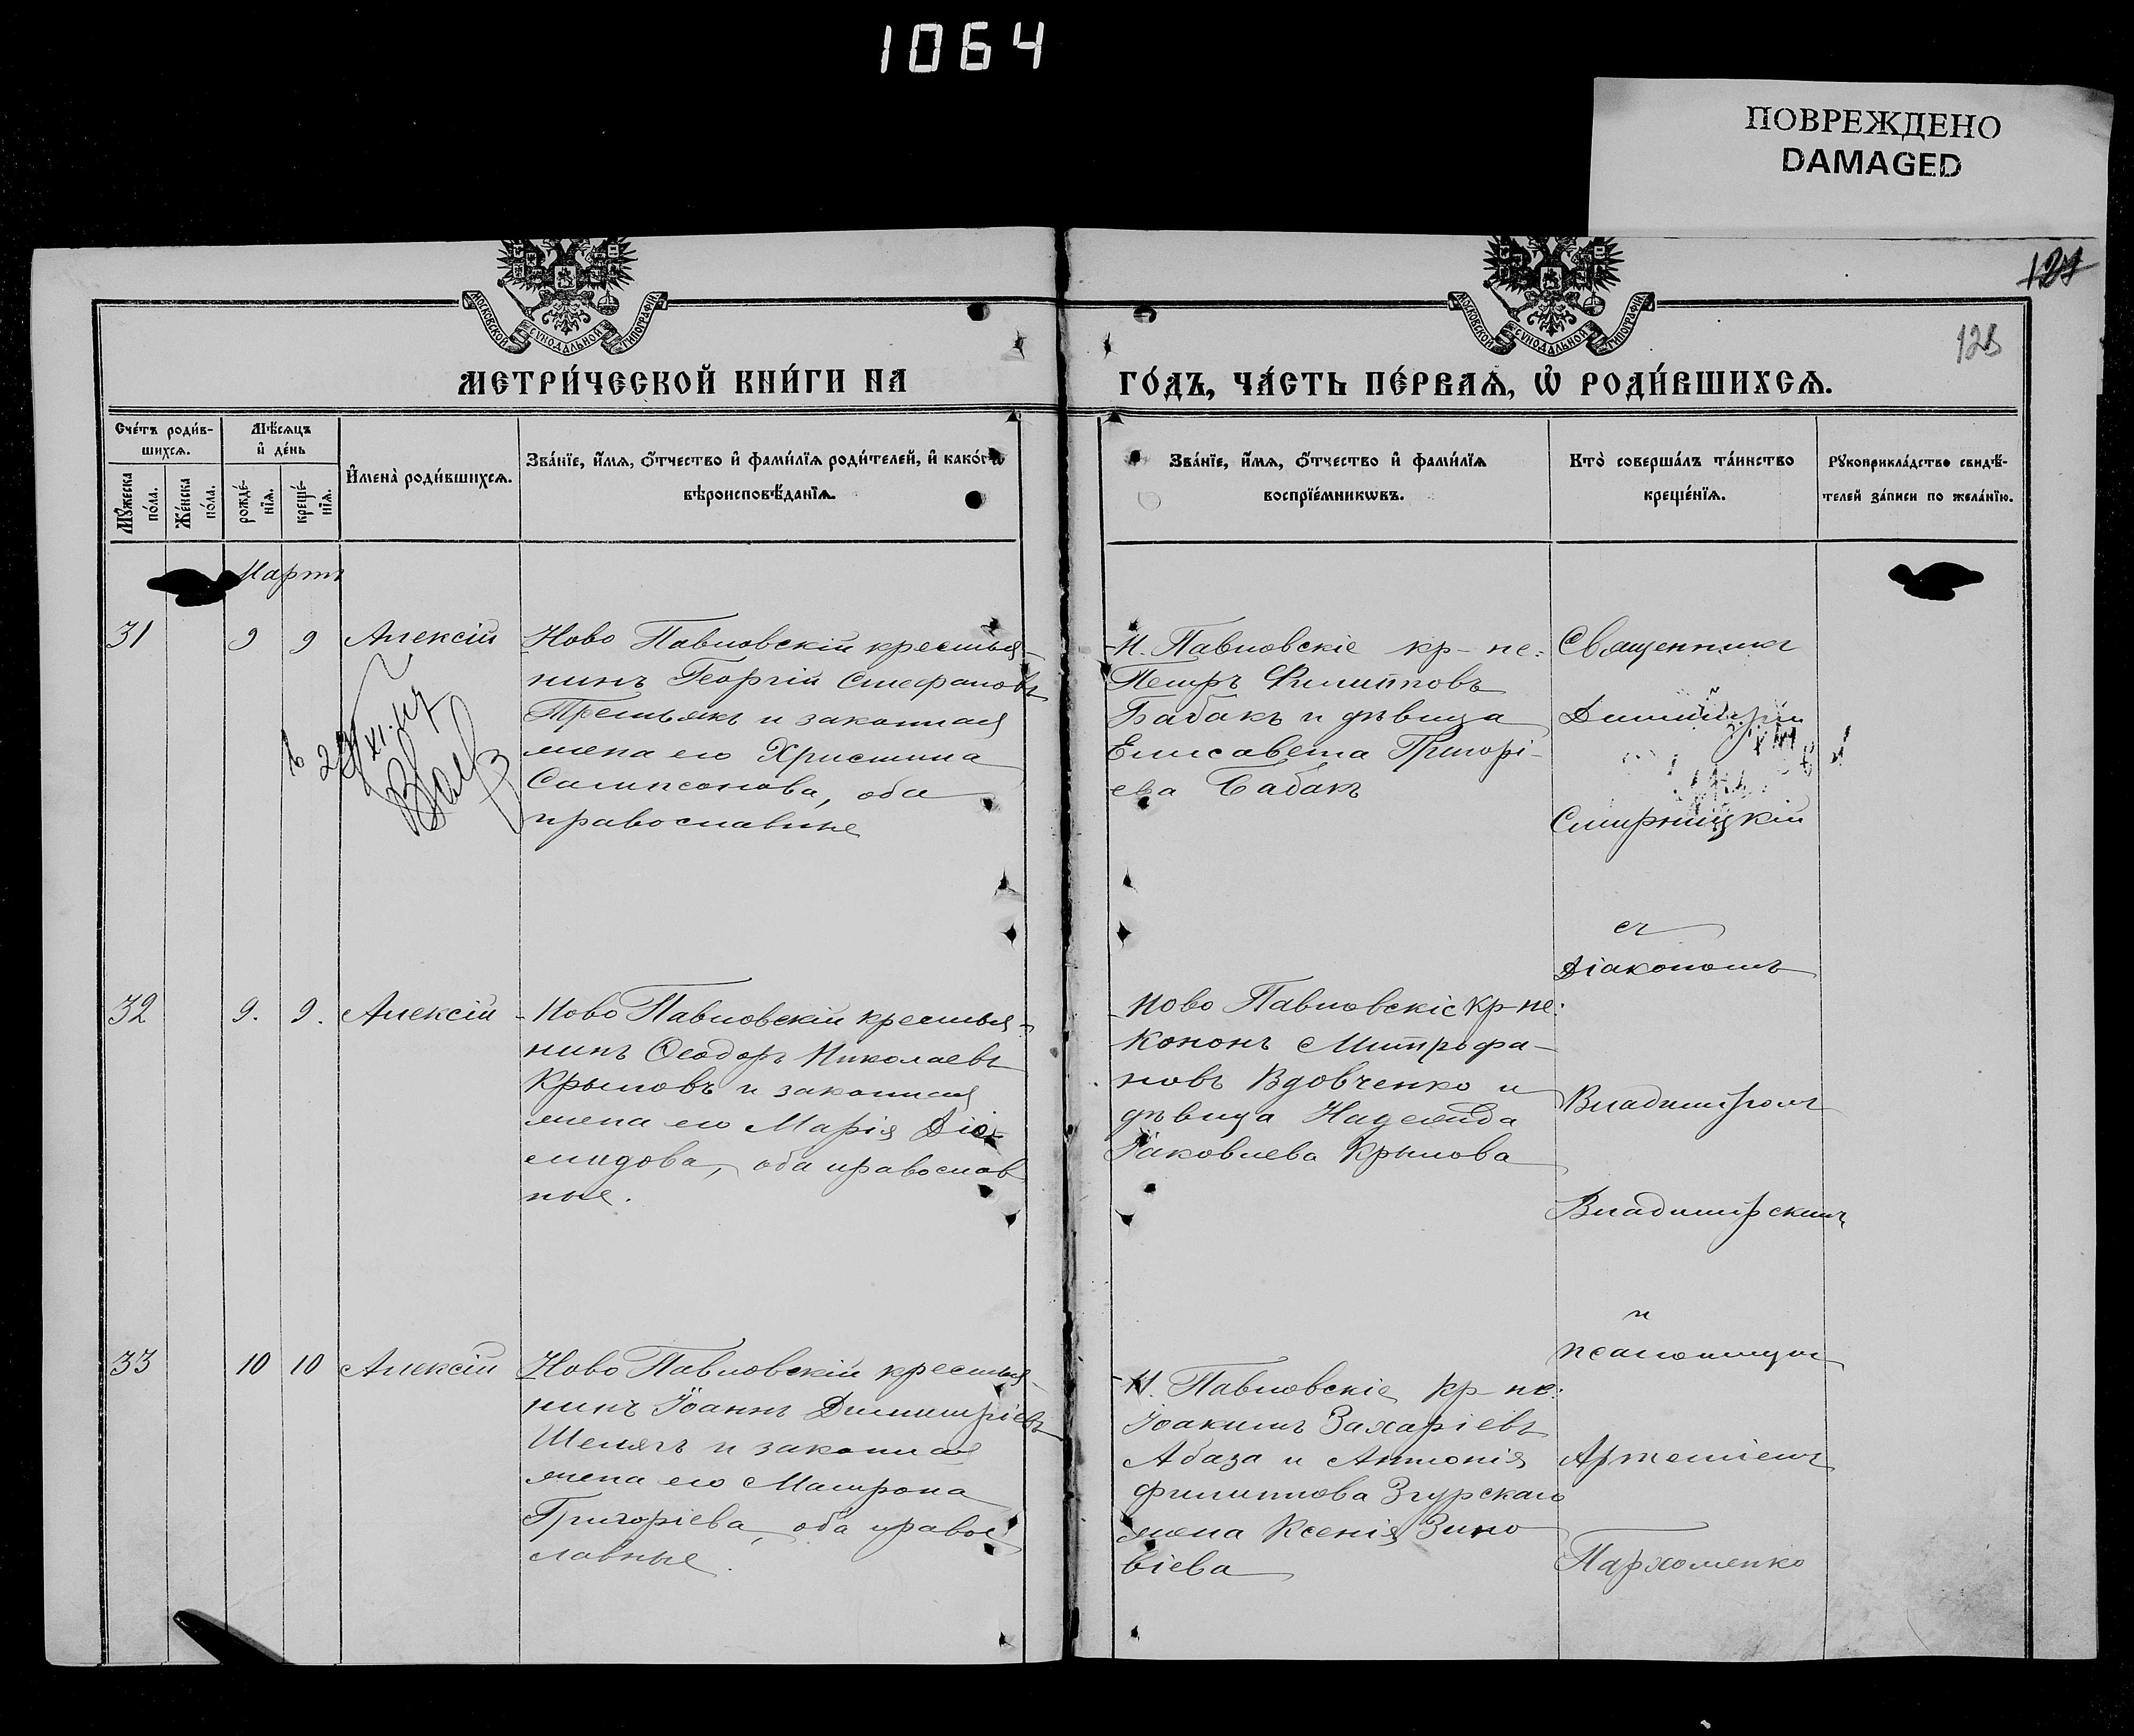 1064
ПОВРЕЖДЕНО
DAMAGED
128
МОСКОВСКОЙ СѴНОДАЛЬНОЙ ТИПОГРАФІИ
МОСКОВСКОЙ СѴНОДАЛЬНОЙ ТИПОГРАФІИ
МЕТРИ́ЧЕСКОЙ КНИ́ГИ НА
ГО́ДЪ, ЧА́СТЬ ПЕ́РВАѦ, Ѡ҆ РОДИ́ВШИХСѦ.
Сче́тъ роди́в-
шихсѧ.
Мѣ́сѧцъ
и҆ де́нь
Мꙋ́жеска
по́ла.
Же́нска
по́ла.
рожде́-
нїѧ.
креще́-
нїѧ.
И҆мена̀ роди́вшихсѧ.
Зва́нїе, и҆́мѧ, ѻ҆́тчество и҆ фами́лїѧ роди́телей, и҆ како́гѡ
вѣроисповѣ́данїѧ.
Зва́нїе, и҆́мѧ, ѻ҆́тчество и҆ фами́лїѧ
воспрїе́мникѡвъ.
Кто̀ соверша́лъ та́инство
креще́нїѧ.
Рꙋкоприкла́дство свидѣ́-
телей за́писи по жела́нїю.
Мартъ
31 9 9 Алексій
Ново Павловскій крестья-
нинъ Георгій Стефановъ
Третьякъ и законная
жена его Христина
Сампсонова, оба
православные
Н. Павловскіе кр-не:
Петръ Филипповъ
Бабакъ и дѣвица
Елисавета Григорі-
ева Бабакъ
Священникъ
Димитрій
Смирницкій
съ
Діакономъ
32 9. 9. Алексій
Ново Павловскій крестья-
нинъ Ѳеодоръ Николаевъ
Крыловъ и законная
жена его Марія Діо-
мидова, оба православ
ные.
Ново Павловскіе кр-не:
Кононъ Митрофа-
новъ Вдовченко и
дѣвица Надежда
Іаковлева Крылова
Владиміромъ
Владимірскимъ
и
псаломщик
33 10 10 Алексій
Ново Павловскій крестья-
нинъ Іоаннъ Димитріевъ
Шелягъ и законная
жена его Матрона
Григоріева, оба право-
славные.
Н. Павловскіе кр-не:
Іоакимъ Захаріевъ
Абаза и Антонія
Филиппова Згурскаго
жена Ксенія Зино
віева
Артеміемъ
Пархоменко